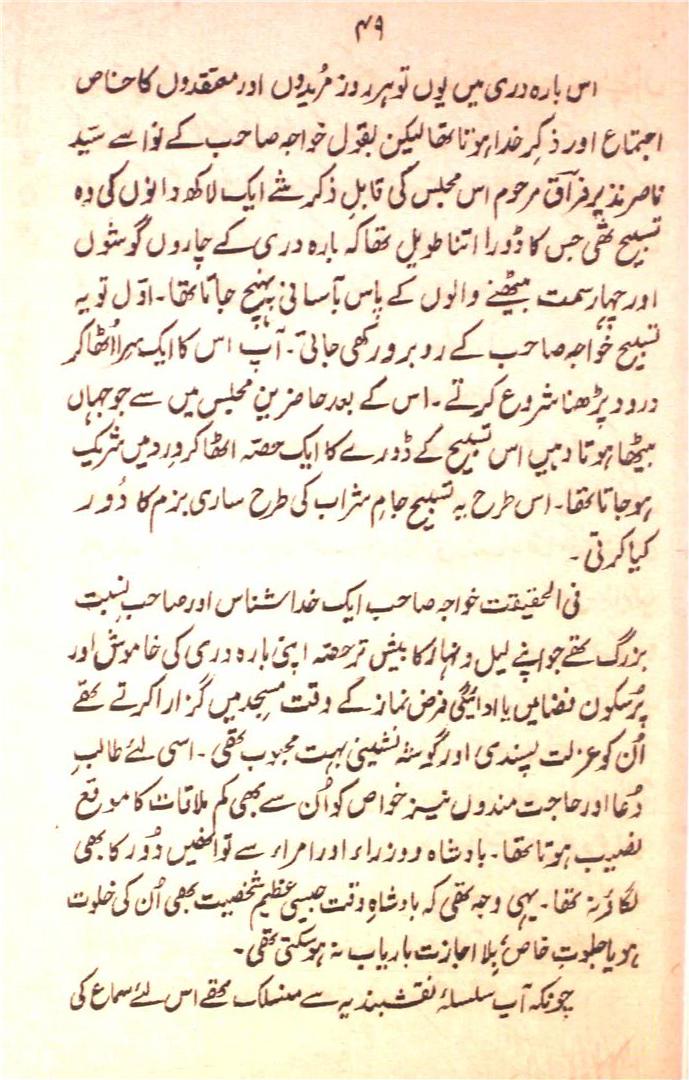 ۴۹
اس بارہ دری میں یوں تو ہر روز مُریدوں اور معتقدوں کا خاص
اجتماع اور ذکرِ خدا ہوتا تھا لیکن بقول خواجہ صاحب کے نواسے سیّد
ناصر نذیر فراقؔ مرحوم اس مجلس کی قابلِ ذکر شے ایک لاکھ دانوں کی وہ
تسبیح تھی جس کا ڈورا اتنا طویل تھا کہ بارہ دری کے چاروں گوشوں
اور چہار سمت بیٹھنے والوں کے پاس بآسانی پہنچ جاتا تھا۔ اوّل تو یہ
تسبیح خواجہ صاحب کے روبرو رکھی جاتی۔ آپ اس کا ایک سِرا اُٹھا کر
درود پڑھنا شروع کرتے۔ اس کے بعد حاضرینِ مجلس میں سے جو جہاں
بیٹھا ہوتا وہیں اس تسبیح کے ڈورے کا ایک حصّہ اٹھا کر وِرد میں شریک
ہو جاتا تھا۔ اس طرح یہ تسبیح جامِ شراب کی طرح ساری بزم کا دُور
کیا کرتی۔
فی الحقیقت خواجہ صاحب ایک خدا شناس اور صاحبِ نسبت
بزرگ تھے جو اپنے لیل و نہار کا بیش تر حصّہ اپنی بارہ دری کی خاموش اور
پُرسکون فضا میں یا ادائیگی فرض نماز کے وقت مسجد میں گزارا کرتے تھے
اُن کو عزلت پسندی اور گوشہ نشینی بہت محبوب تھی۔ اسی لئے طالبِ
دُعا اور حاجت مندوں نیز خواص کو اُن سے بھی کم ملاقات کا موقع
نصیب ہوتا تھا۔ بادشاہ و وزراء اور امراء سے تو انھیں دُور کا بھی
لگاؤ نہ تھا۔ یہی وجہ تھی کہ بادشاہِ وقت جیسی عظیم شخصیت بھی اُن کی خلوت
ہو یا جلوتِ خاص بِلا اجازت باریاب نہ ہو سکتی تھی۔
چونکہ آپ سلسلۂ نقشبندیہ سے منسلک تھے اس لئے سماع کی